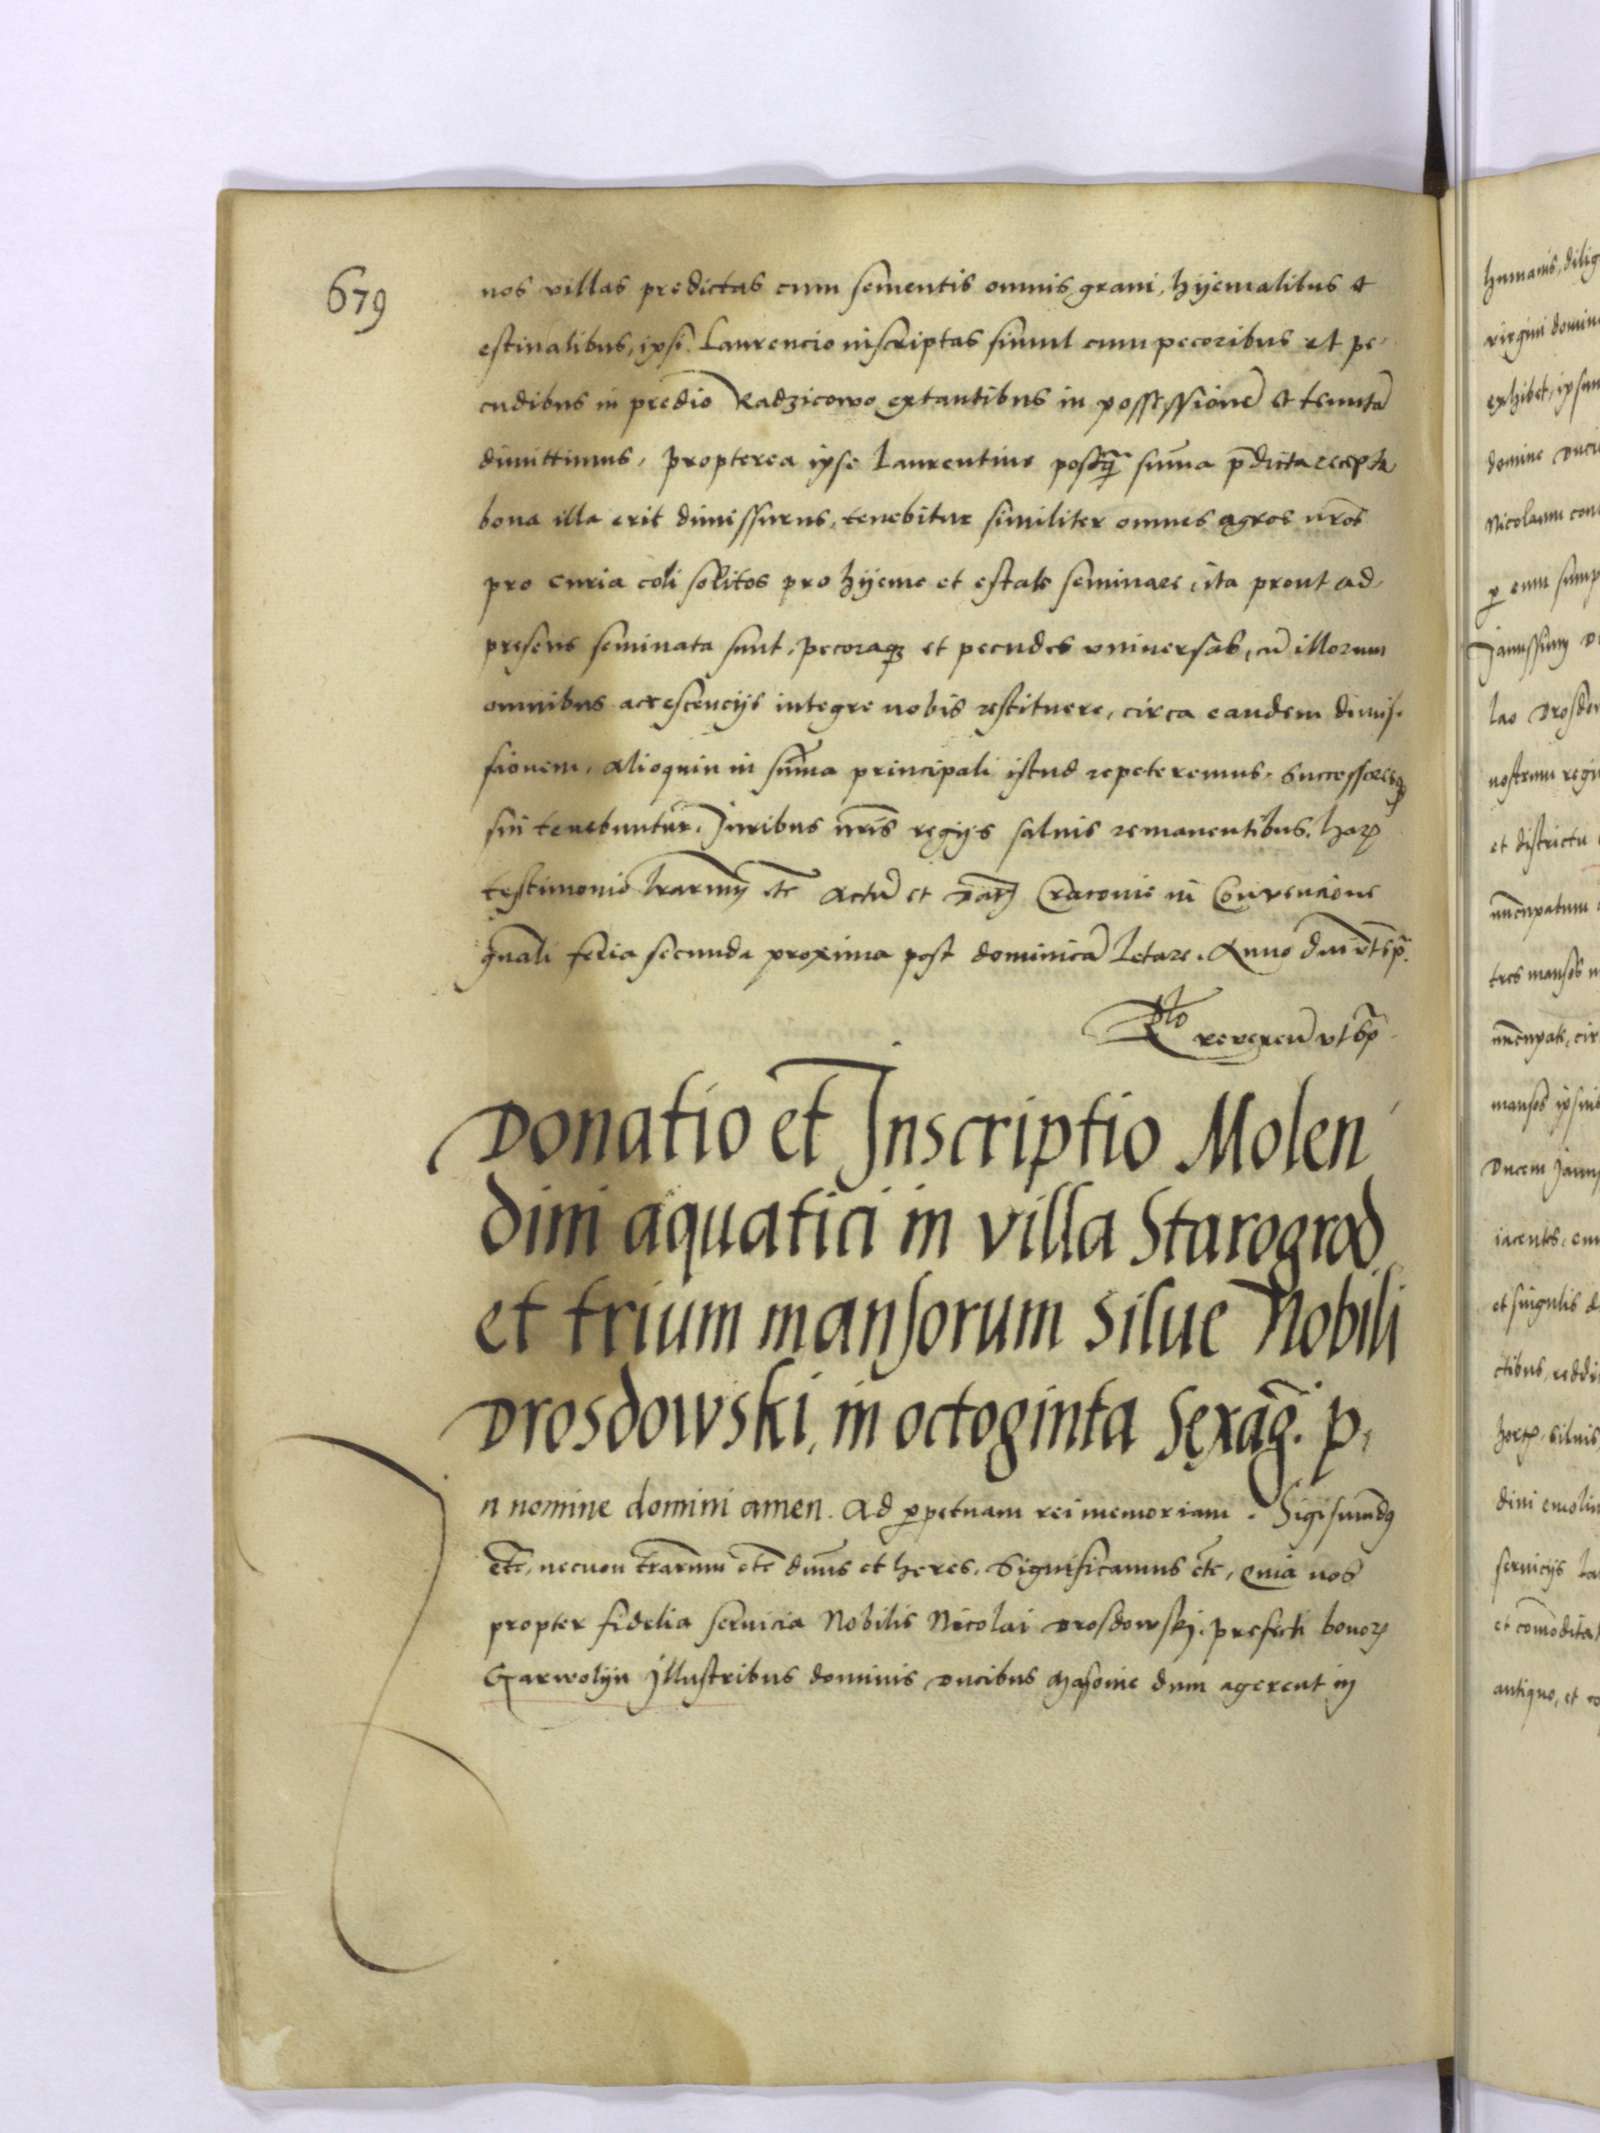 679
nos villas predictas cum sementis omnis grani, hijemalibus et
estiualibus, ipsi Laurencio inscriptas simul cum pecoribus et pe-
cudibus in predio Radzicowo extantibus in possessionē et tenutā
dimittimus, propterea ipse Laurentius postq̄ sum̄a p̄dicta recepta
bona illa erit dimissurus, tenebitur similiter omnes agros nr̄os
pro curia coli solitos pro hijeme et estate seminare, ita prout ad-
presens seminata sunt, pecoraq; et pecudes vniuersas, cū illorum
omnibus acrescencijs integre nobis restituere, circa eandem dimis-
sionem, alioquin in sum̄a principali istud repeteremus, Successoresq;
sui tenebuntur. Juribus nr̄is regijs saluis remanentibus. har
testimonio lr̄arum etc Actū et dat Cracouie in Conuencione
gn̄ali feria secunda proxima post dominicā letare. Anno dni vt sp̄.
Rlo reuerēn vt sp̄.
Donatio et Inscriptio Molen
dini aquatici in villa Starogrod
et trium mansorum silue Nobili
Drosdowski, in octoginta sexag. p.
n nomine domini amen. Ad ꝑpetuam rei memoriam. Sigismūdꝰ
etc, necnon tr̄arum etc dn̄us et heres. Significamus etc, quia nos
propter fidelia seruicia Nobilis Nicolai Drosdowskj prefecti bonor
Garwolijn Illustribus dominis ducibus Masouie dum agerent in
humanis, dilig
virgini domin
exhibet, ipsum
domine duci
Nicolaum con
ꝑ eum sump
Janussium
lao Drosdo
nostrum regi
et districtu
nuncupatum
tres mansos
nuncupate, cir
mansos ipsius
ducem Janu
iacentes, cum
et singulis
ctibus, reddi
silluis
dini emolu
seruicijs la
et com̄odita
antiquo, et